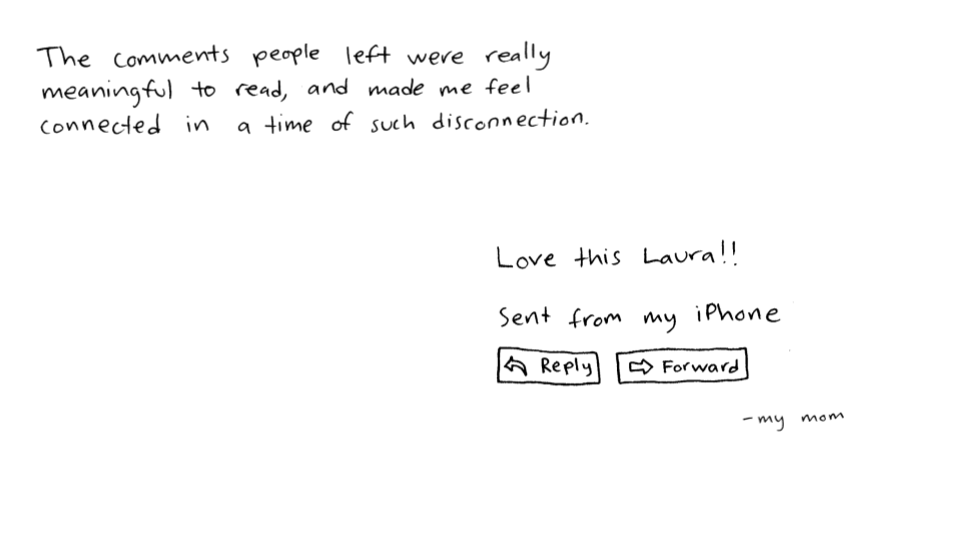 The comments people left were really
meaningful to read, and made me feel
connected in a time of such disconnection.
Love this Laura!!
Sent from my iPhone
Reply Forward
-my mom